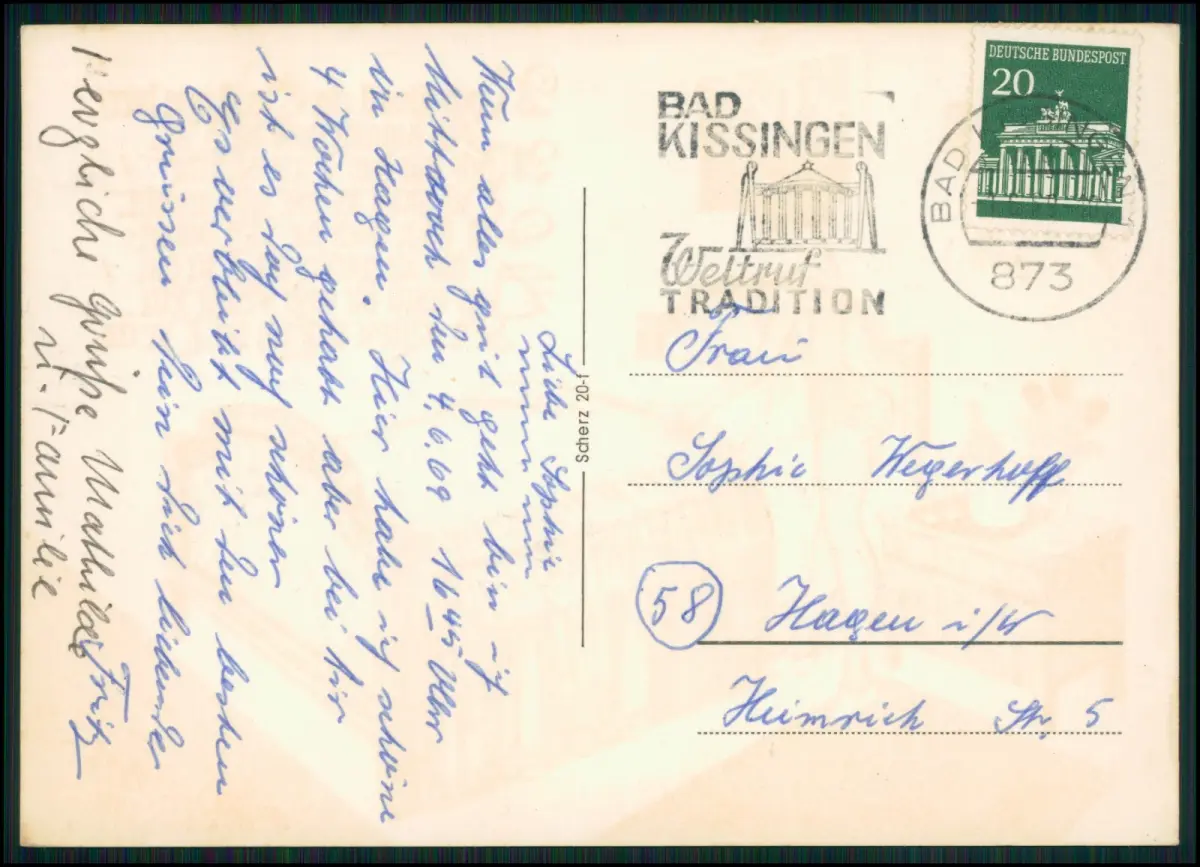 Liebe Sophie
Wenn alles gut geht bin ich
Mittwoch den 4.6.69 16 45 Uhr
in Hagen. Hier habe ich schöne
4 Wochen gehabt aber bei Dir
ist es doch noch schöner
Es verbleibt mit den besten
Grüssen Dein Dich liebender
Fritz
Herzliche Grüße Mathilde
u. Familie
Scherz 20-f
BAD
KISSINGEN
Weltruf
TRADITION
DEUTSCHE BUNDESPOST
20
BAD KISSINGEN 1
873
Frau
Sophie Wegerhoff
58 Hagen i/W
Heinrich Str. 5